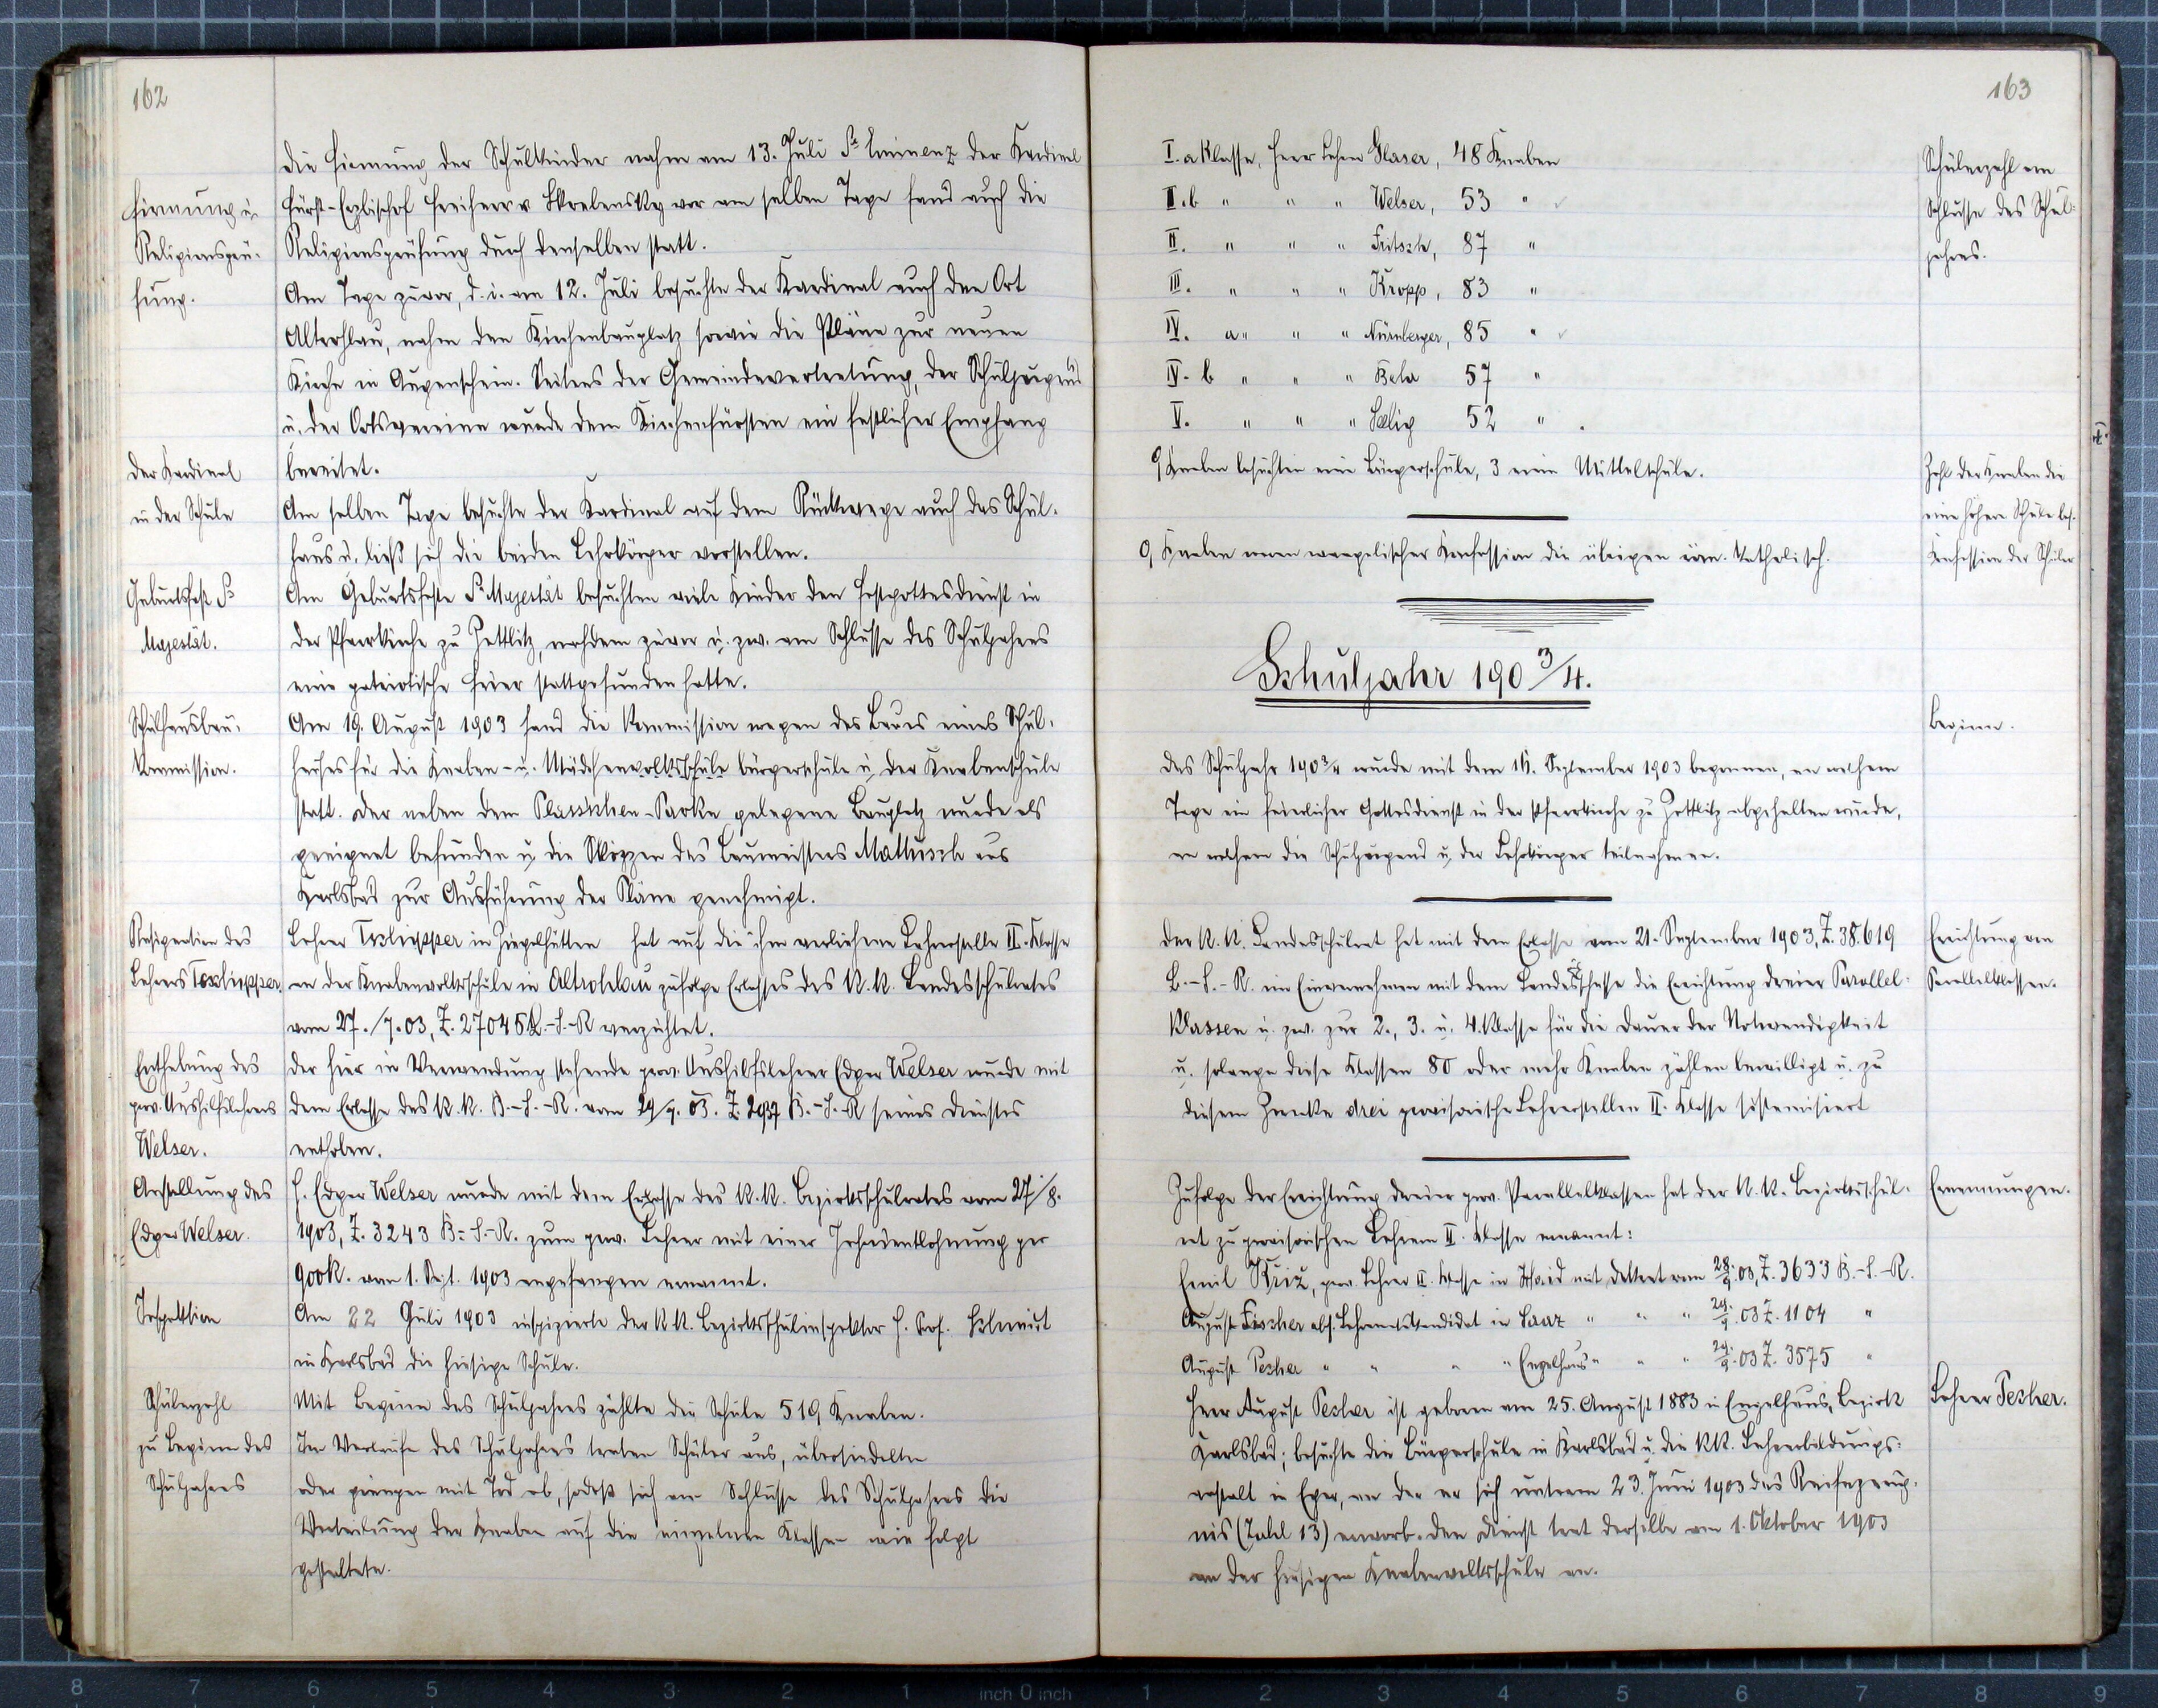 162
Die Firmung der Schulkinder nahm am 13. Juli Sr Eminenz der Kardinal
Firmung u.
Fürst-Erzbischof Freiherr v. Skrbensky vor am selben Tage fand auch die
Religionsprü-
Religionsprüfung durch denselben statt.
fung.
Am Tage zuvor, d. i. am 12. Juli besuchte der Kardinal auch den Ort
Altrohlau, nahm den Kirchenbauplatz sowie die Pläne zur neuen
Kirche in Augenschein. Seitens der Gemeindevertretung, der Schuljugend
u. der Ortsvereine wurde dem Kirchenfürsten ein festlicher Empfang
Der Kardinal
bereitet.
in der Schule
Am selben Tage besuchte der Kardinal auf dem Rückwege auch das Schul-
haus u. ließ sich die beiden Lehrkörper vorstellen.
Geburtsfest Sr
Am Geburtsfeste Sr Majestät besuchten viele Kinder den Festgottesdienst in
Majestät.
der Pfarrkirche zu Zettlitz, nachdem zuvor u. zw. am Schlusse des Schuljahres
eine patriotische Feier stattgefunden hatte.
Schulhausbau-
Am 19. August 1903 fand die Kommission wegen des Baues eines Schul-
Kommission.
hauses für die Knaben- u. Mädchenvolksschule bürgerschule u. der Knabenschule
statt. Der neben dem Plass'schen-Parke gelegene Bauplatz wurde als
geeignet befunden u. die Skizzen des Baumeisters Mattusch aus
Karlsbad zur Ausführung der Pläne genehmigt.
Resignation des
Lehrer Tschepper in Ziegelhütten hat auf die ihm verliehene Lehrerstelle II. Klasse
Lehrers Tschepper.
an der Knabenvolksschule in Altrohlau zufolge Erlasses des k. k. Landesschulrates
vom 27./7.03, Z. 27045 L.-S.-R verzichtet.
Enthebung des
Der hier in Verwendung stehende prov. Aushilfslehrer Edgar Welser wurde mit
prov. Aushilfslehrers
dem Erlasse des k. k. B.-S.-R. vom 29/7. 03. Z. 2937 B.-S.-R seines Dienstes
Welser.
enthoben.
Anstellung des
H. Edgar Welser wurde mit dem Erlasse des k. k. Bezirksschulrates vom 27/8.
Edgar Welser.
1903, Z. 3243 B.-S.-R. zum prov. Lehrer mit einer Jahresentlohnung per
900 K. vom 1. Sept. 1903 angefangen ernannt.
Inspektion
Am 22 Juli 1903 inspizierte der k. k. Bezirksschulinspektor H. Prof. Schmidt
in Karlsbad die hiesige Schule.
Schülerzahl
Mit Beginn des Schuljahres zählte die Schule 519 Knaben.
zu Beginn des
Im Verlaufe des Schuljahres traten Schüler aus, übersiedelten
Schuljahres
oder gingen mit Tod ab, sodaß sich am Schlusse des Schuljahres die
Verteilung der Knaben auf die einzelnen Klassen wie folgt
gestaltete.
163
I. a Klasse, Herr Lehrer Glaser, 48 Knaben
Schülerzahl am
II. b " " " Welser, 53 "
Schlusse des Schul-
II. " " " Fritsch, 87 "
jahres.
III. " " " Kropp, 83 "
IV. a " " " Nürnberger, 85 "
IV. b " " " Behr 57 "
V. " " " Seelig 52 " .
9 Knaben besuchten eine Bürgerschule, 3 eine Mittelschule.
Zahl der Knaben die
eine höhere Schule bes.
9 Knaben waren evangelischer Konfession die übrigen röm. katholisch.
Konfession der Schüler
Schuljahr 1903/4.
Beginn.
Das Schuljahr 1903/4 wurde mit dem 16. September 1903 begonnen, an welchem
Tage ein feierlicher Gottesdienst in der Pfarrkirche zu Zettlitz abgehalten wurde,
an welchem die Schuljugend u. der Lehrkörper teilnahmen.
Der k. k. Landesschulrat hat mit dem Erlasse vom 21. September 1903, Z. 38.619
Errichtung von
L.-S.-R. im Einvernehmen mit dem Landesausschusse die Errichtung dreier Parallel-
Parallelklassen.
klassen u. zw. zur 2., 3. u. 4. Klasse für die Dauer der Notwendigkeit
u. solange diese Klassen 80 oder mehr Knaben zählen bewilligt u. zu
diesem Zwecke drei provisorische Lehrerstellen II. Klasse sistemisiert
Zufolge der Errichtung dreier prov. Parallelklassen hat der k. k. Bezirksschul-
Ernennungen.
rat zu provisorischen Lehrern II. Klasse ernannt:
Emil Kriz, prov. Lehrer II. Klasse in Haid mit Dekret vom 28./9. 03, Z. 3633 B.-S.-R.
August Fischer abs. Lehramtskandidat in Saaz " " " 29./9. 03 Z. 1104 "
August Pecher " " " " Engelhaus " " " 29./9. 03 Z. 3575 "
Herr August Pecher ist geboren am 25. August 1883 in Engelhaus, Bezirk
Lehrer Pecher.
Karlsbad; besuchte die Bürgerschule in Karlsbad u. die k. k. Lehrerbildungs-
anstalt in Eger, an der er sich unterm 23. Juni 1903 das Reifezeug-
nis (Zahl 13) erwarb. Den Dienst trat derselbe am 1. Oktober 1903
an der hiesigen Knabenvolksschule an.
8 7 6 5 4 3 2 1 inch 0 inch 1 2 3 4 5 6 7 8 9